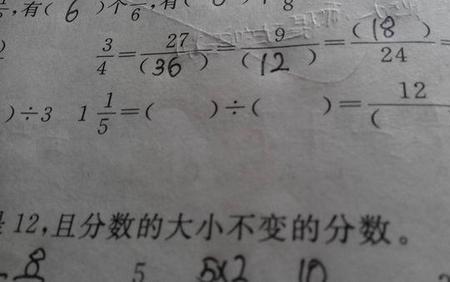 ,有( 6 )个 /6 ,有( ) 8
3/4 = 27/(36) = 9/(12) = (18)/24 =
)÷3 1 1/5 =( )÷( )= 12/(
12,且分数的大小不变的分数。
8 5 5×2 10